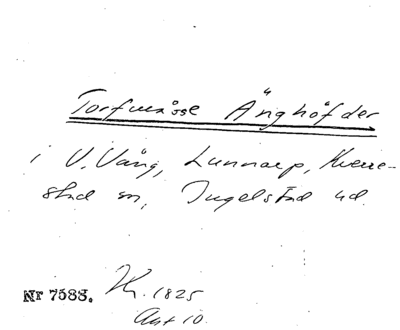 Torfmosse Änghöfder
i V. Vång, Lunnarp, Kverre-
stad sn, Ingelstad hd.
Nr 7588. Kr. 1825
Ant 10.